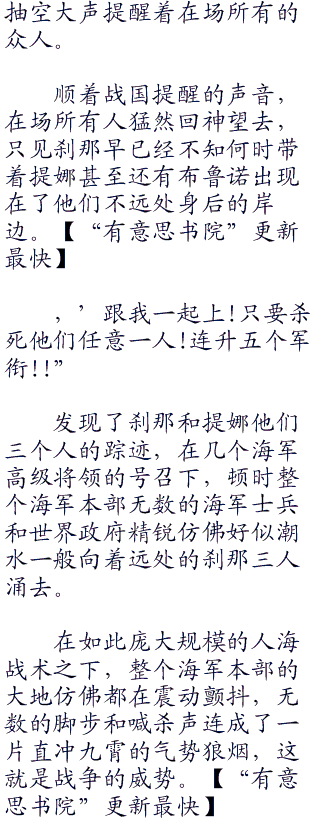 抽空大声提醒着在场所有的
众人。
顺着战国提醒的声音，
在场所有人猛然回神望去，
只见刹那早已经不知何时带
着提娜甚至还有布鲁诺出现
在了他们不远处身后的岸
边。【“有意思书院”更新
最快】
，’跟我一起上!只要杀
死他们任意一人!连升五个军
衔!!”
发现了刹那和提娜他们
三个人的踪迹，在几个海军
高级将领的号召下，顿时整
个海军本部无数的海军士兵
和世界政府精锐仿佛好似潮
水一般向着远处的刹那三人
涌去。
在如此庞大规模的人海
战术之下，整个海军本部的
大地仿佛都在震动颤抖，无
数的脚步和喊杀声连成了一
片直冲九霄的气势狼烟，这
就是战争的威势。【“有意
思书院”更新最快】